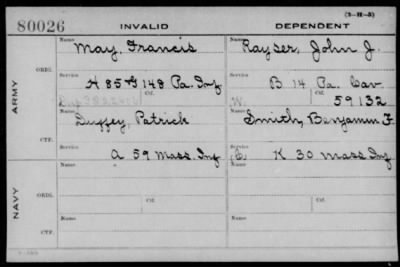 (3-H-5)
80026 INVALID DEPENDENT
Name Name
May, Francis Rayser, John J.
ORIG. Service Service
H 85 & 148 Pa. Inf B 14 Pa. Cav
Ctf. Ctf.
59132
ARMY
Name Name
Duffey, Patrick Smith, Benjamin F
CTF. Service Service
A 59 Mass. Inf K 30 Mass Inf
Name Name
ORIG. Service Service
Ctf. Ctf.
NAVY
Name Name
CTF. Service Service